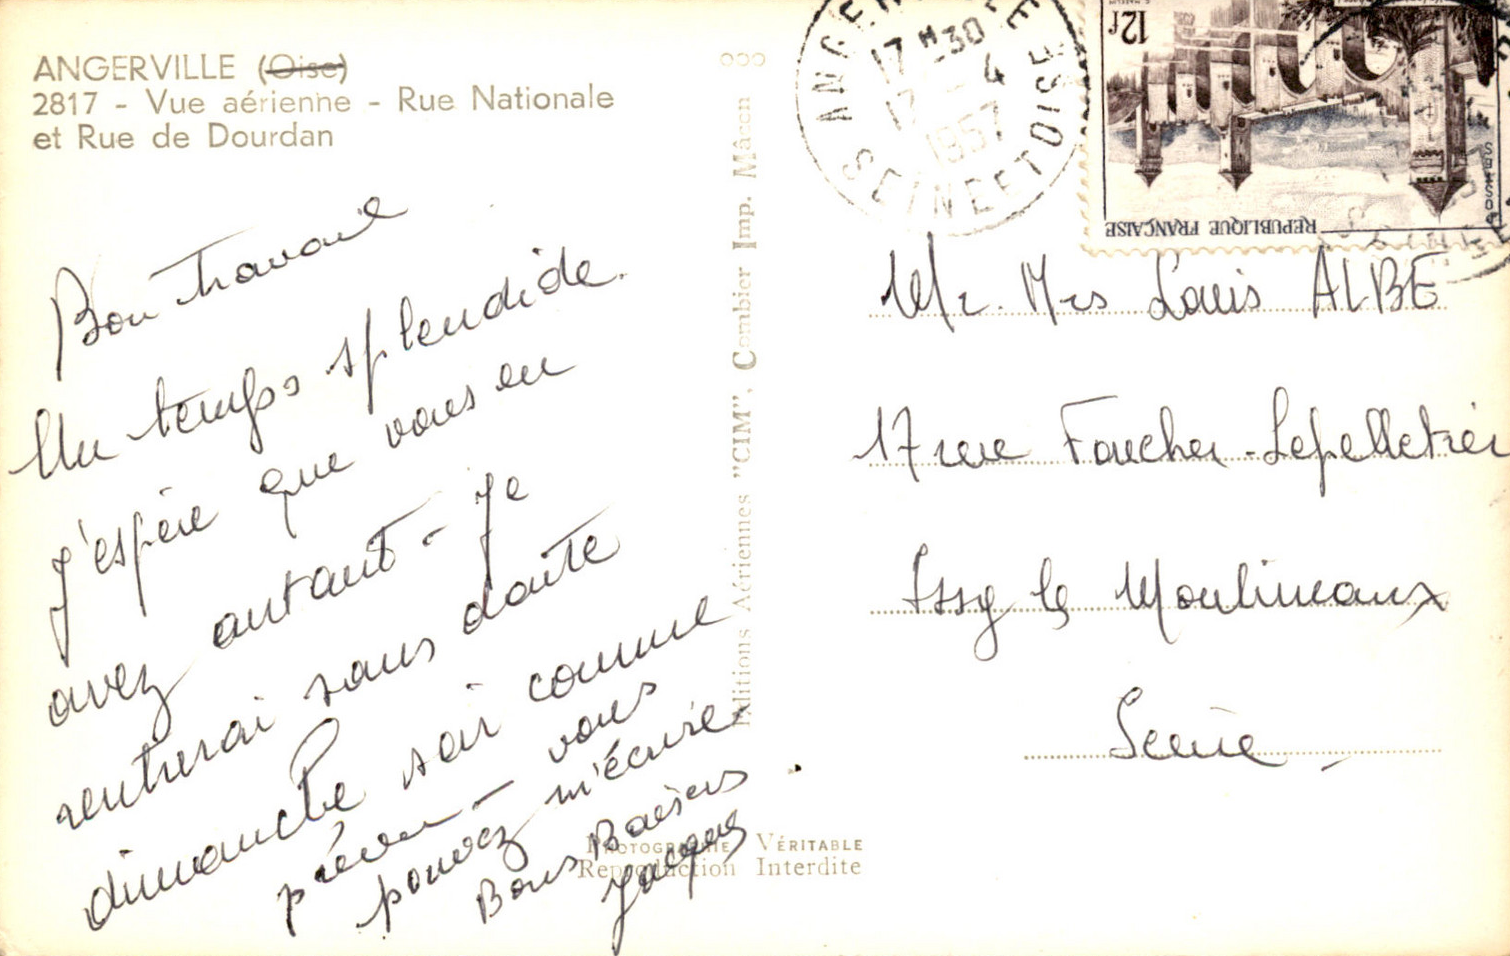 ANGERVILLE (Oise)
2817 - Vue aérienne - Rue Nationale
et Rue de Dourdan
Bon Travail
Un temps splendide.
J'espère que vous en
avez autant - Je
rentrerai sans doute
dimanche soir comme
prévu - vous
pouvez m'écrire
Bons Baisers
Jacques
Editions Aériennes "CIM", Combier Imp. Mâcon
PHOTOGRAPHIE VÉRITABLE
Reproduction Interdite
ANGERVILLE
17 H 30
17 - 4
1957
SEINE ET OISE
12f
RÉPUBLIQUE FRANÇAISE
Mr. Mrs Louis ALBE
17 rue Foucher-Lepelletier
Issy les Moulineaux
Seine